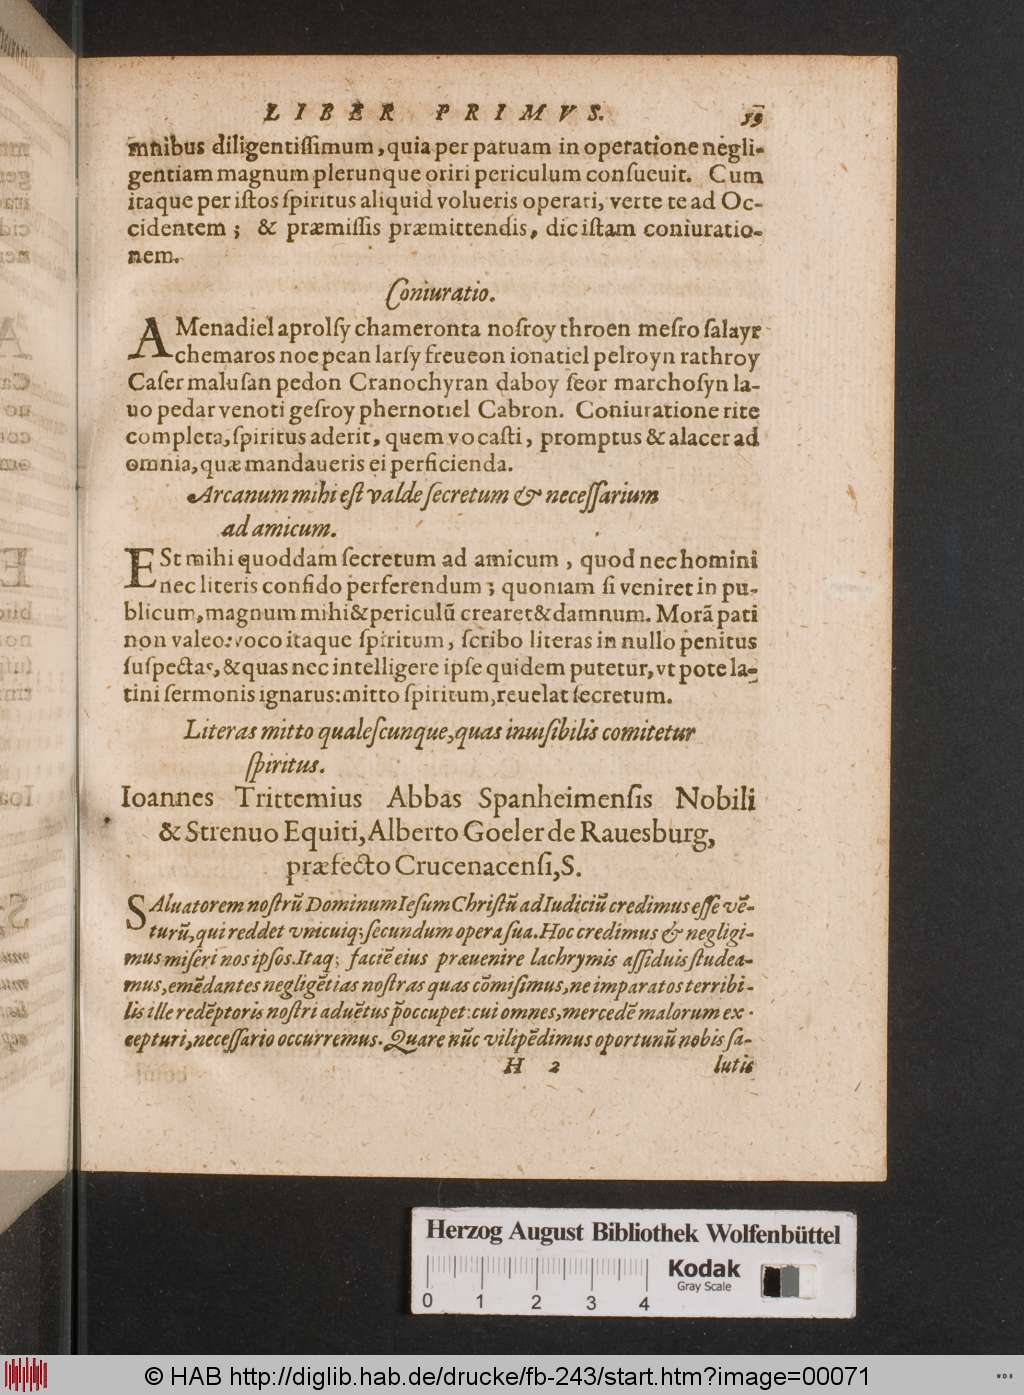 LIBER PRIMVS. 59
mnibus diligentiſſimum, quia per paruam in operatione negli-
gentiam magnum plerunque oriri periculum conſueuit. Cum
itaque per iſtos ſpiritus aliquid volueris operari, verte te ad Oc-
cidentem; & præmiſſis præmittendis, dic iſtam coniuratio-
nem.
Coniuratio.
AMenadiel aprolſy chameronta noſroy throen meſro ſalayr
chemaros noe pean larſy freueon ionatiel pelroyn rathroy
Caſer maluſan pedon Cranochyran daboy ſeor marchoſyn la-
uo pedar venoti geſroy phernotiel Cabron. Coniuratione rite
completa, ſpiritus aderit, quem vocaſti, promptus & alacer ad
omnia, quæ mandaueris ei perficienda.
Arcanum mihi eſt valde ſecretum & neceſſarium
ad amicum.
ESt mihi quoddam ſecretum ad amicum, quod nec homini
nec literis confido perferendum; quoniam ſi veniret in pu-
blicum, magnum mihi & periculũ crearet & damnum. Morã pati
non valeo: voco itaque ſpiritum, ſcribo literas in nullo penitus
ſuſpectas, & quas nec intelligere ipſe quidem putetur, vt pote la-
tini ſermonis ignarus: mitto ſpiritum, reuelat ſecretum.
Literas mitto qualeſcunque, quas inuiſibilis comitetur
ſpiritus.
Ioannes Trittemius Abbas Spanheimenſis Nobili
& Strenuo Equiti, Alberto Goeler de Rauesburg,
præfecto Crucenacenſi, S.
SAluatorem noſtrũ Dominum Ieſum Chriſtũ ad Iudiciũ credimus eſſe vẽ-
turũ, qui reddet vnicuiq; ſecundum opera ſua. Hoc credimus & negligi-
mus miſeri nos ipſos. Itaq; faciẽ eius præuenire lachrymis aſſiduis ſtudea-
mus, emẽdantes negligẽtias noſtras quas cõmiſimus, ne imparatos terribi-
lis ille redẽptoris noſtri aduẽtus p̃occupet: cui omnes, mercedẽ malorum ex-
cepturi, neceſſario occurremus. Quare nũc vilipẽdimus oportunũ nobis ſa-
H 2 lutis
Herzog August Bibliothek Wolfenbüttel
Kodak
Gray Scale
0 1 2 3 4
© HAB http://diglib.hab.de/drucke/fb-243/start.htm?image=00071